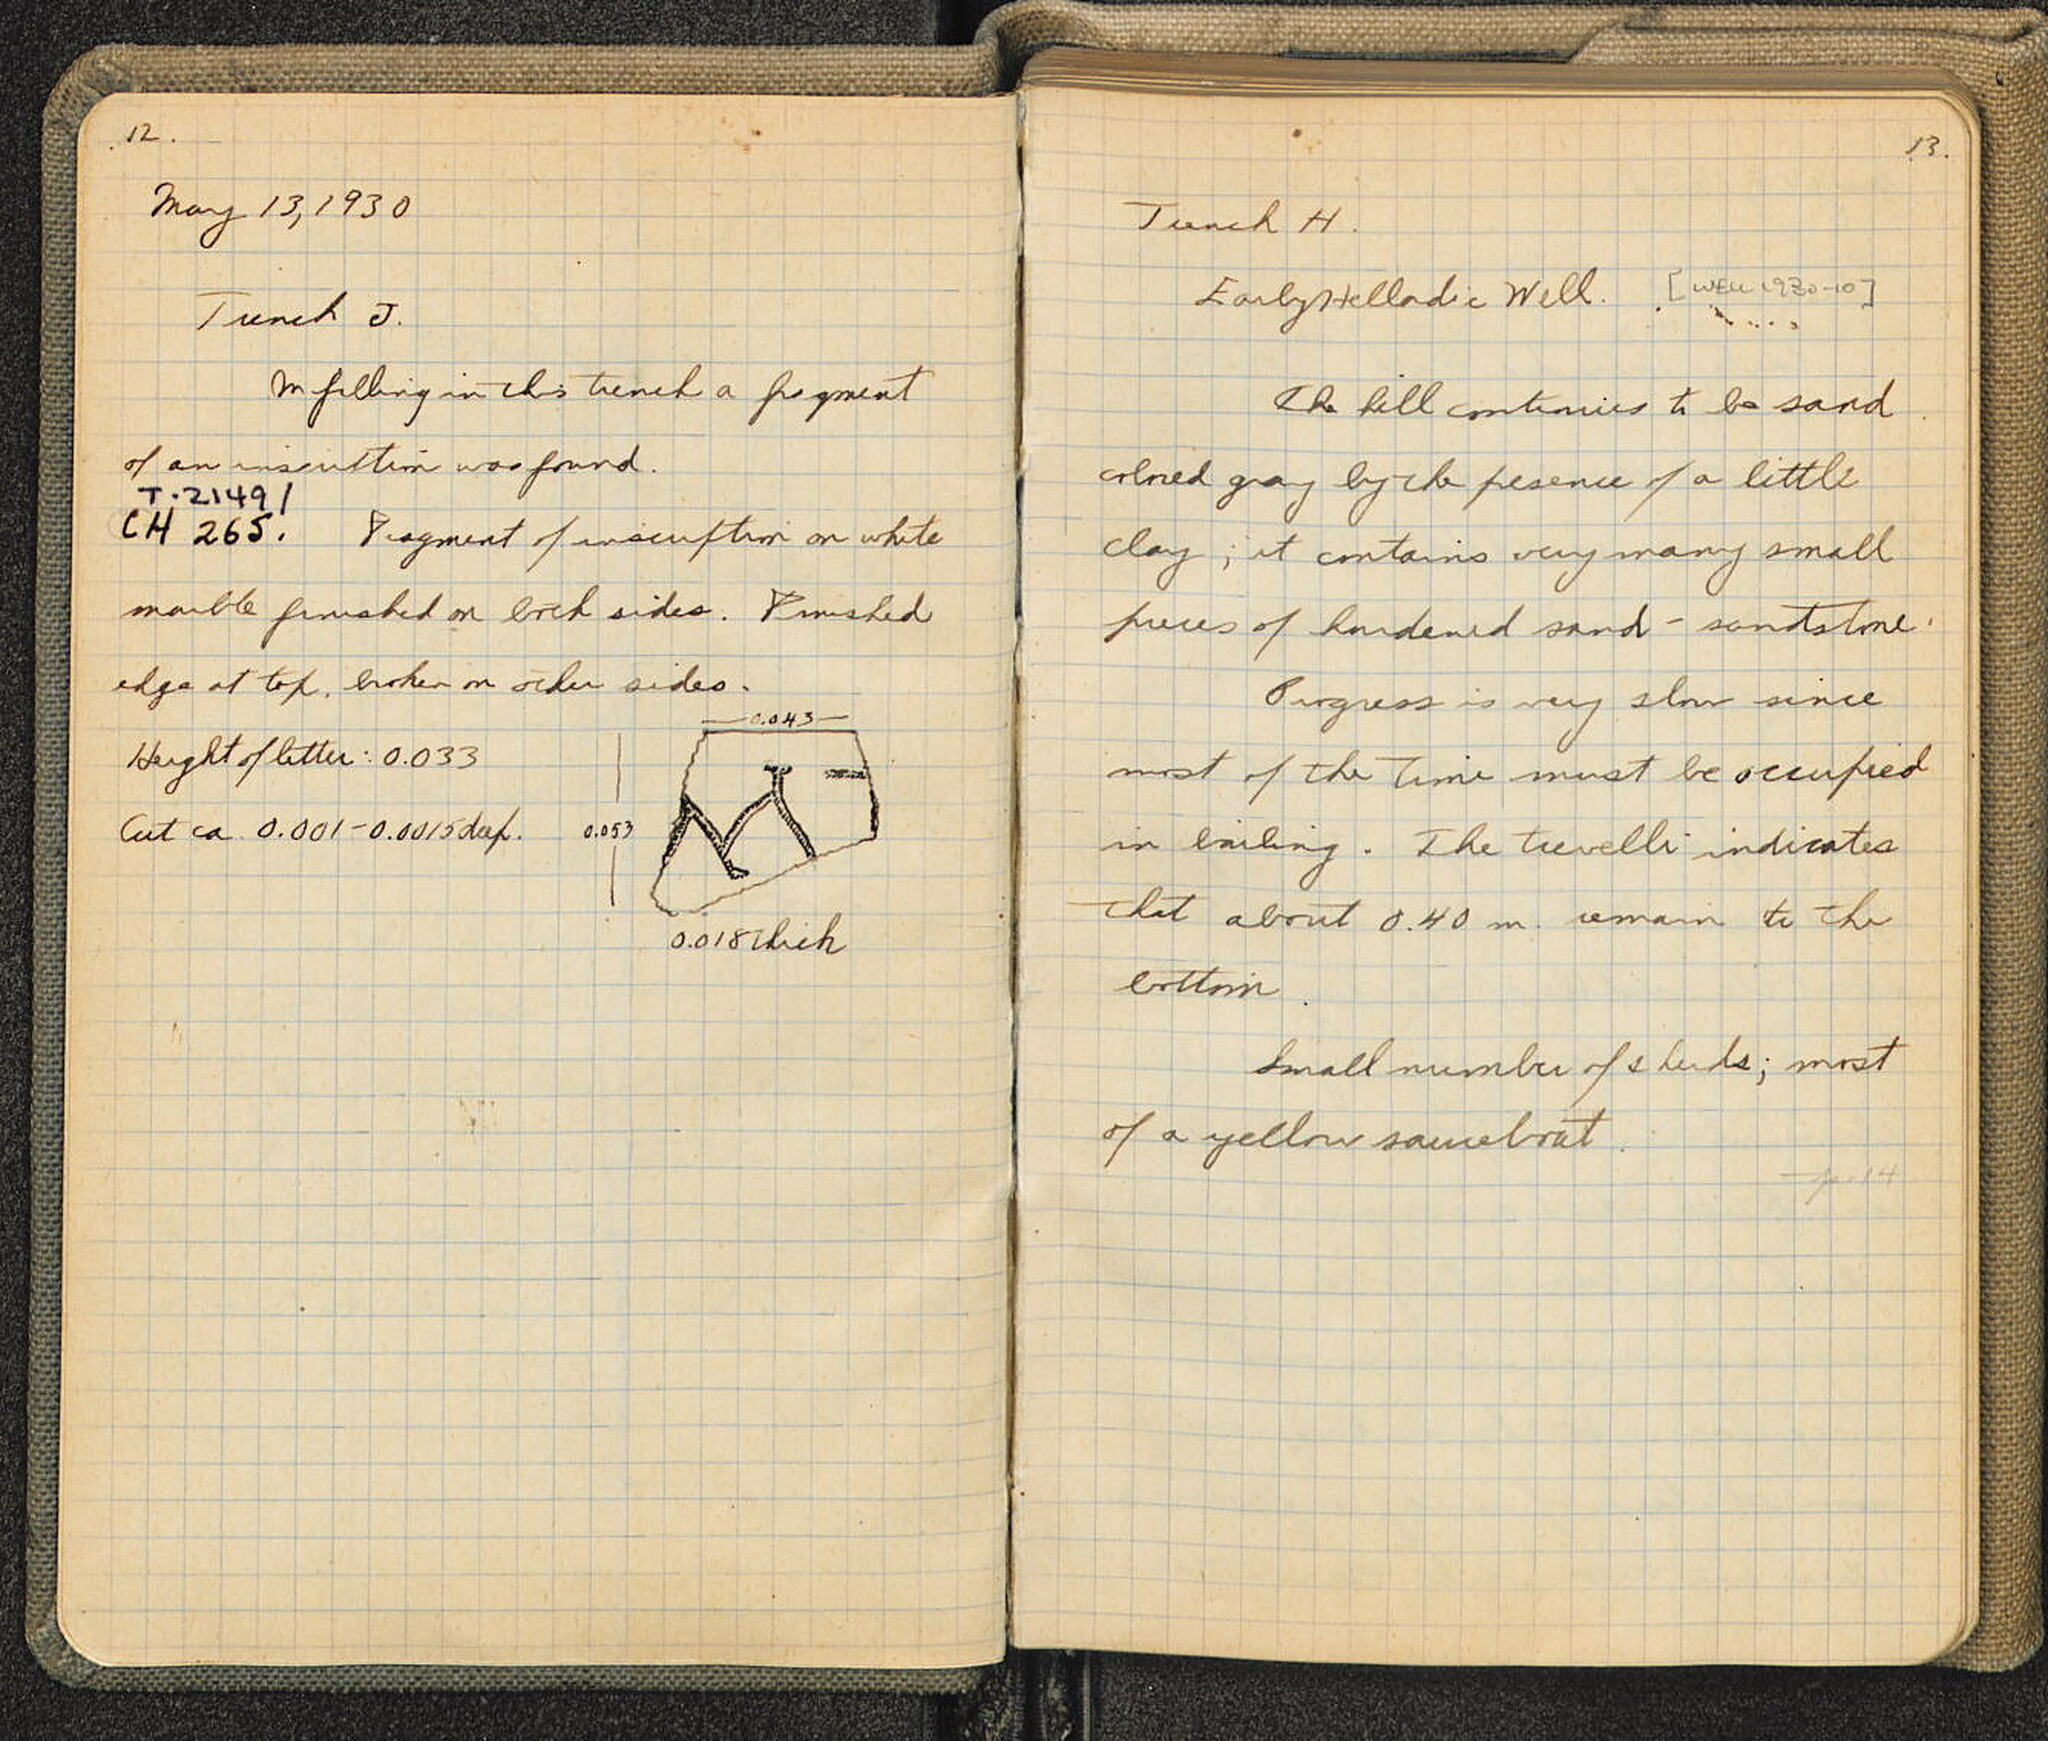 12.
May 13, 1930
Trench J.
In filling in this trench a fragment
of an inscription was found.
T. 2149 /
CH 265. Fragment of inscription on white
marble finished on both sides. Finished
edge at top, broken on other sides.
0.043
Height of letter: 0.033
Cut ca 0.001-0.0015 deep.
0.053
0.018 thick
13.
Trench H.
Early Helladic Well. [WELL 1930-10]
The fill continues to be sand
colored gray by the presence of a little
clay; it contains very many small
pieces of hardened sand - sandstone.
Progress is very slow since
most of the time must be occupied
in bailing. The trevelli indicates
that about 0.40 m. remain to the
bottom.
Small number of sherds; most
of a yellow sauceboat.
→ p. 14